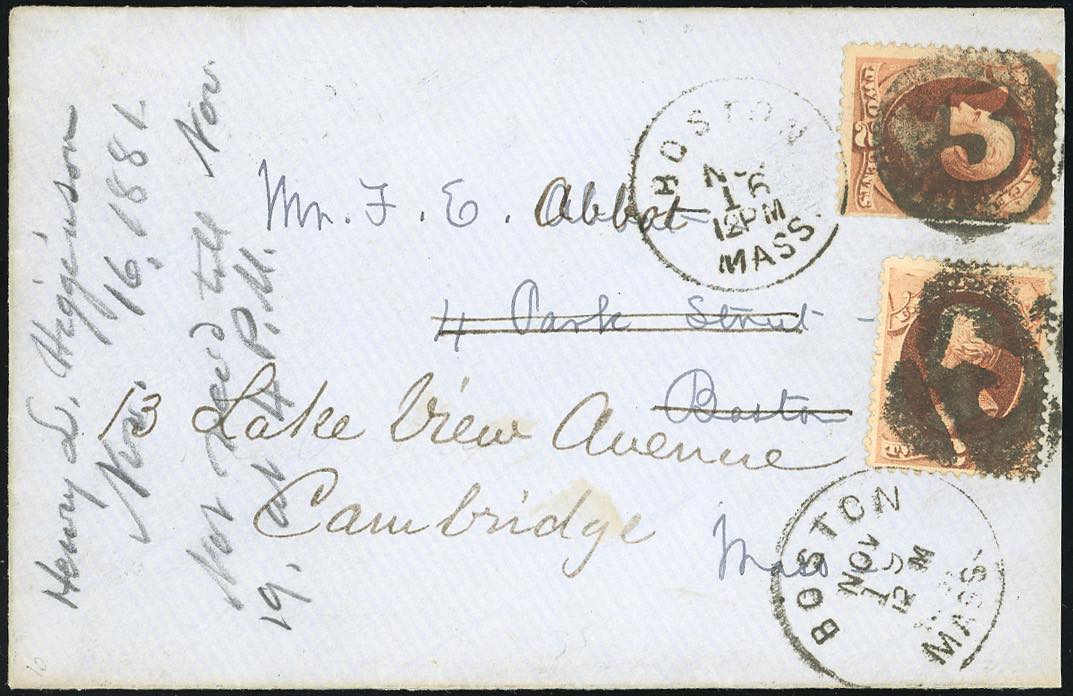 Henry L. Higginson
Nov. 16, 1881.
Not rec'd till Nov.
19. at 4 P.M.
Mr. F. E. Abbot
4 Park Street
Boston
13 Lake View Avenue
Cambridge
Mass
BOSTON
16
12PM
MASS.
BOSTON
NOV
19
12 M
MASS.
TWO
2